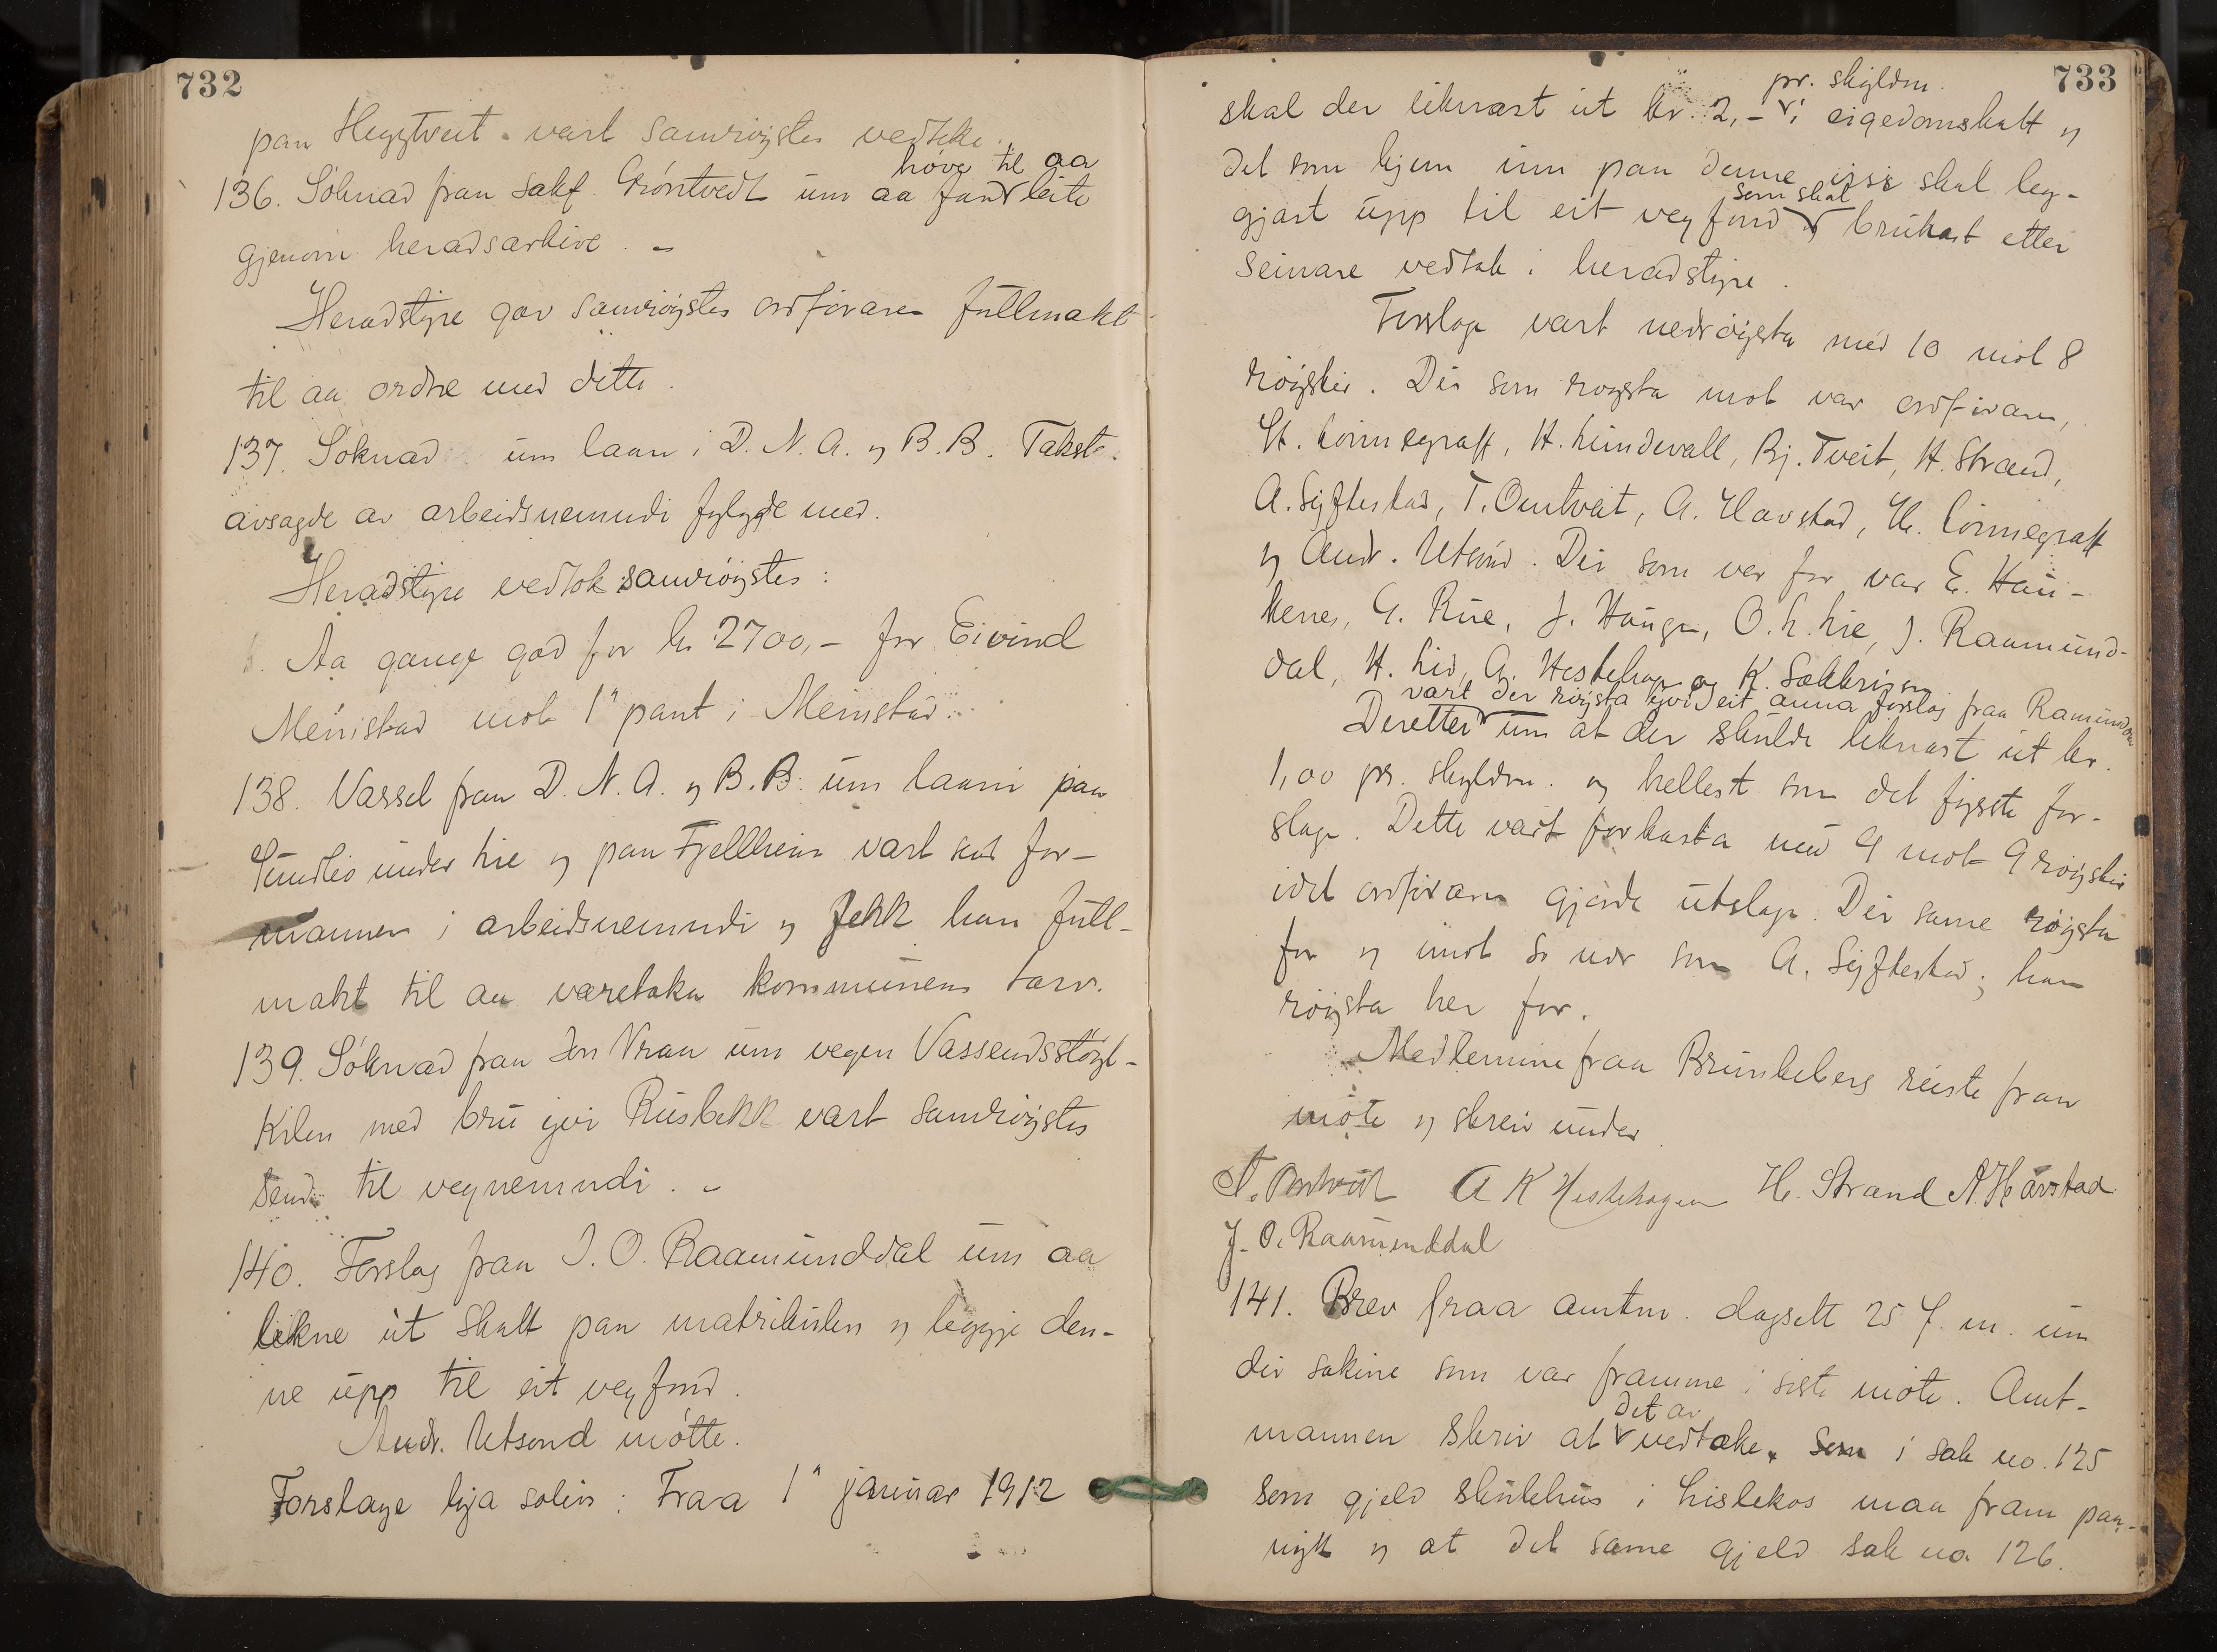 732
paa Heggtveit vart samrøystes vedteke.
136. Søknad fraa sakf. Grøntvedt um aa faa høve til aa leite
gjenom heradsarkive. -
Heradstyre gav samrøystes ordføraren fullmakt
til aa ordne med dette.
137. Søknad um laan i D. N. A. og B. B. Takst-
avsagde av arbeidsnemndi fylgde med.
Heradstyre vedtok samrøystes:
Aa gange god for kr 2700,- for Eivind
Meinstad mot 1ª pant i Meinstad.
138. Varsel fraa D. N. A. og B. B. um laani paa
Sundlid under Lie og paa Fjellheim vart sendt for-
mannen i arbeidsnemndi og fekk han full-
makt til aa vareteka kommunens tarv.
139. Søknad fraa Jon Vraa um vegen Vassendstøyl-
Kilen med bru yvi Rusbekk vart samrøystes
send til vegnemndi. -
140. Forslag fraa J. O. Raamunddal um aa
likne ut skatt paa matrikulen og leggje den-
ne upp til eit vegfond.
Andr. Utsond møtte.
Forslage lyd soleis: Fraa 1ª januar 1912
733
skal der liknast ut kr. 2,- pr. skyldm. i eigedomskatt og
det som kjem inn paa denne vis skal leg-
gjast upp til eit vegfond som skal brukast etter
seinare vedtak i heradstyre.
Forslage vart nedrøysta med 10 mot 8
røyster. Dei som røysta mot var ordføraren,
St. Lønnegraff, H. Lundevall, Bj. Tveit, H. Strand,
A. Syftestad, T. Omtveit, A. Havstad, H. Lønnegraff
og Andr. Utsond. Dei som var for var E. Hau-
kenes, G. Rue, J. Haugen, O. L. Lie, J. Raamund-
dal, H. Lid, A. Hestehagen og K. Sækkrisson.
Deretter vart der røysta yvi eit anna forslag fraa Ramunddal
um at der skulde liknast ut kr.
1,00 pr. skyldm. og hellest som det fyrste for-
slage. Dette vart forkasta med 9 mot 9 røyster
idet ordføraren gjorde utslage. Dei same røysta
for og imot so nær som A. Syftestad; han
røysta her for.
Medlemine fraa Brunkeberg reiste fraa
møte og skreiv under.
T. Omtveit A K Hestehagen H. Strand A. Håvstad
J. O. Raamunddal
141. Brev fraa amtm. dagsett 25 f. m. um
dei sakine som var framme i siste møte. Amt-
mannen skriv at det av vedtake, som i sak no. 125
som gjeld skulehus i Lislekos maa fram paa-
nytt og at det same gjeld sak no 126.